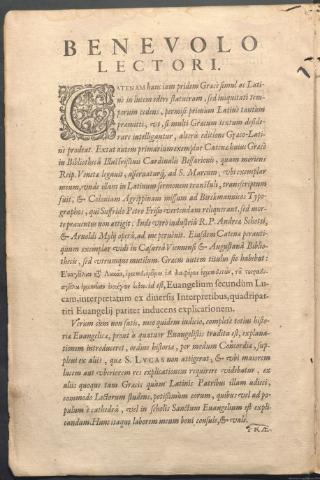 BENEVOLO
LECTORI.
CATENAM hanc iam pridem Græcè simul ac Latinè
in lucem edere statueram, sed iniquitati temporum
cedens, permisi primùm Latinè tantùm
præmitti, vt, si multi Græcum textum desiderare
intelligantur, alterâ editione Græco-Latinè
prodeat. Extat autem primarium exemplar Catenæ huius Græcè
in Bibliothecâ Illustrissimi Cardinalis Bessarionis, quam moriens
Reip. Venetæ legauit, asseruaturq; ad S. Marcum, vbi exemplar
meum, vnde illum in Latinum sermonem transtuli, transcriptum
fuit, & Coloniam Agrippinam missum ad Birckmannicos Typographos,
qui Suffrido Petro Frisio vertendam reliquerant, sed morte
præuentus non attigit: Inde verò industriâ R. P. Andreæ Schotti,
& Arnoldi Mylij operâ, ad me peruênit. Eiusdem Catenæ perantiquum
exemplar vidi in Cæsareâ Viennensi & Augustanâ Bibliothecis,
sed vtrumque mutilum. Græcus autem titulus sic habebat:
id est, Euangelium secundùm Lucam,
interpretatum ex diuersis Interpretibus, quadripartiti
Euangelij pariter inducens explicationem.
Verùm cùm non satis, meo quidem iudicio, completè totius historiæ
Euangelicæ, prout à quatuor Euangelistis tradita est, explanationem
introduceret, ordine historiæ, per modum Concordiæ, suppleui
ex aliis, quæ S. LVCAS non attigerat; & vbi maiorem
lucem aut vberiorem res explicationem requirere videbatur, ex
aliis quoque tam Græcis quàm Latinis Patribus illam adieci,
commodo Lectorum studens, potissimùm eorum, quibus vel ad populum
è cathedrâ, vel in scholis Sanctum Euangelium est explicandum.
Hunc itaque laborem meum boni consule, & vale.
PRÆ-